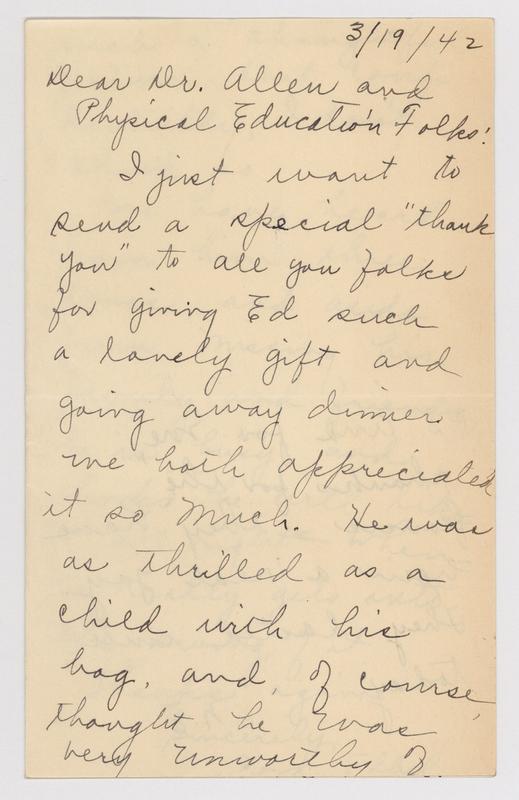 3/19/42
Dear Dr. Allen and
Physical Education Folks:
I just want to
send a special "thank
you" to all you folks
for giving Ed such
a lovely gift and
going away dinner.
We both appreciated
it so much. He was
as thrilled as a
child with his
bag, and, of course,
thought he was
very unworthy of